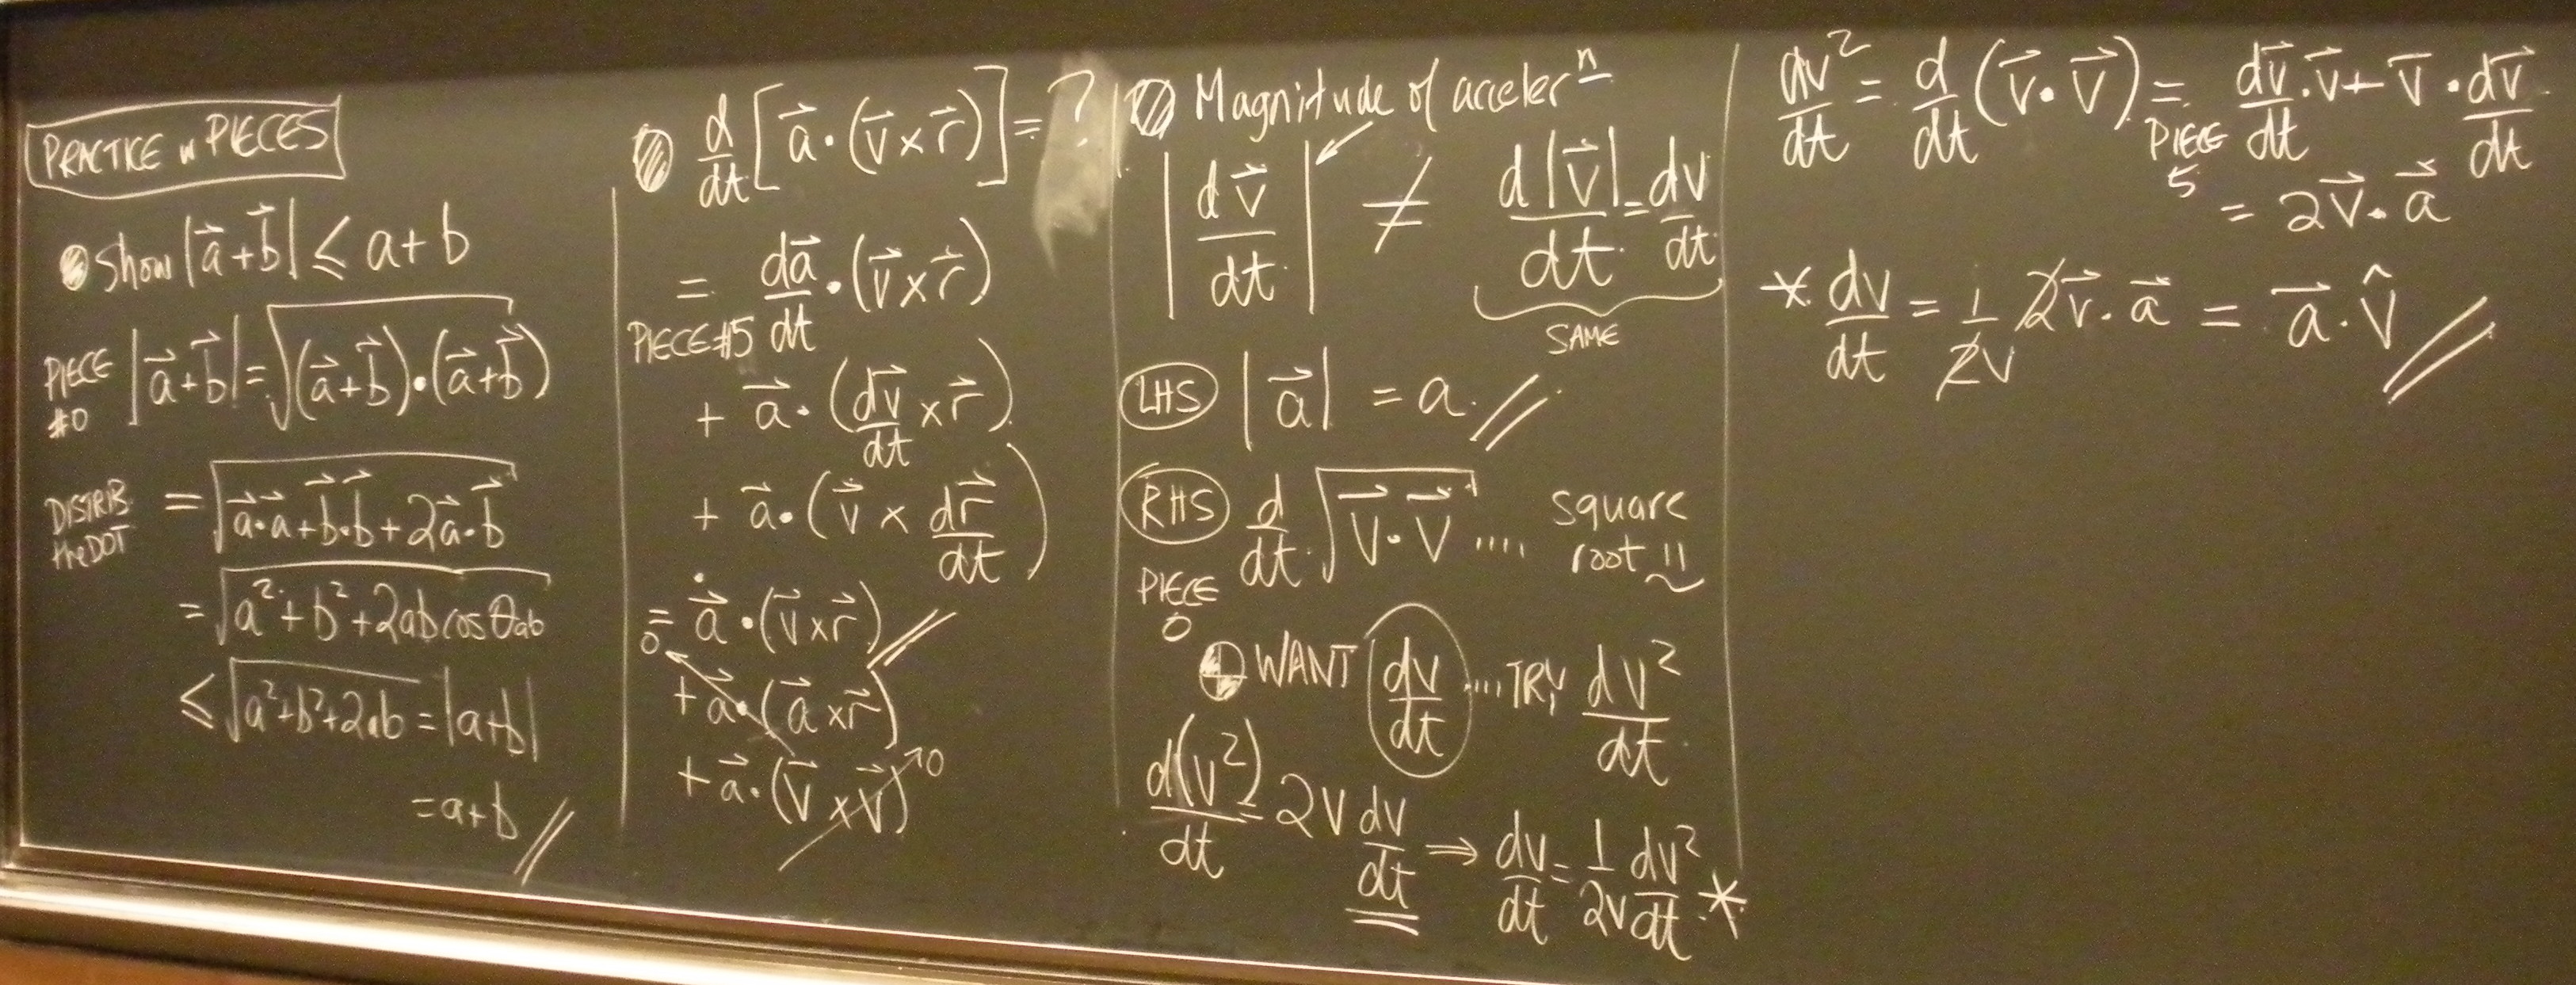 PRACTICE w PIECES
Show |a⃗+b⃗| ≤ a+b
PIECE #0 |a⃗+b⃗| = √(a⃗+b⃗)•(a⃗+b⃗)
DISTRIB the DOT = √a⃗•a⃗+b⃗•b⃗+2a⃗•b⃗
= √a²+b²+2ab cos θab
≤ √a²+b²+2ab = |a+b|
= a+b //
d/dt [a⃗•(v⃗×r⃗)] = ?
= PIECE #5 da⃗/dt •(v⃗×r⃗)
+ a⃗•(dv⃗/dt × r⃗)
+ a⃗•(v⃗ × dr⃗/dt)
= a⃗̇ •(v⃗×r⃗) //
0
+ a⃗•(a⃗×r⃗)
+ a⃗•(v⃗×v⃗) 0
Magnitude of accelerⁿ
|dv⃗/dt| ≠ d|v⃗|/dt = dv/dt
SAME
LHS |a⃗| = a //
RHS d/dt √v⃗•v⃗ .... square
root !!
PIECE 0
WANT dv/dt .... TRY dv²/dt
d(v²)/dt = 2v dv/dt ⇒ dv/dt = 1/2v dv²/dt *
dv²/dt = d/dt (v⃗•v⃗) = PIECE 5 dv⃗/dt •v⃗ + v⃗ • dv⃗/dt
= 2v⃗•a⃗
* dv/dt = 1/2v 2v⃗•a⃗ = a⃗•v̂ //